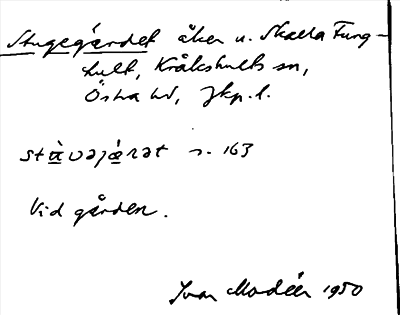 Stugegärdet åker u. Skälla Ljung-
hult, Kråkshults sn,
Östra hd, Jkp. l.
stàvajǽrat s. 163
Vid gården.
Ivar Modéer 1950